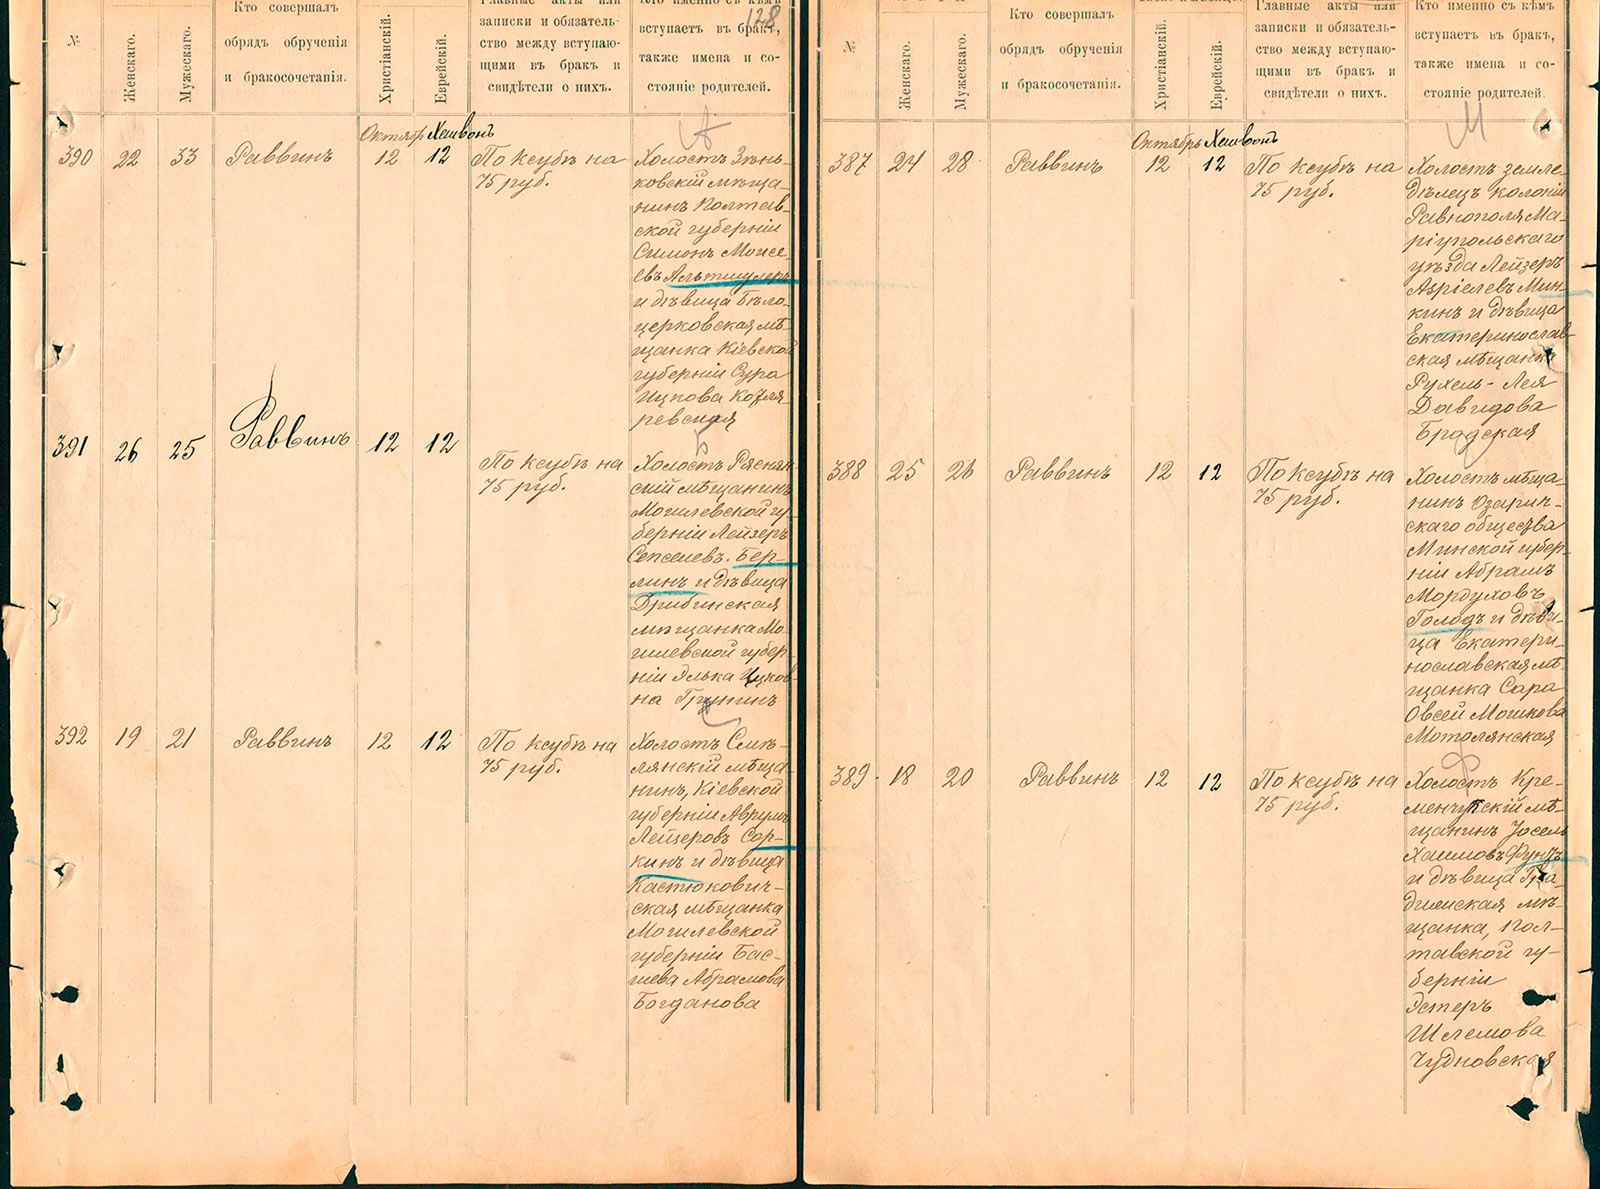 128
№
Женскаго.
Мужескаго.
Кто совершалъ
обрядъ обрученія
и бракосочетанія.
Христіанскій.
Еврейскій.
Главные акты или
записки и обязатель-
ство между вступаю-
щими въ бракъ и
свидѣтели о нихъ.
Кто именно съ кѣмъ
вступаетъ въ бракъ,
также имена и со-
стояніе родителей.
А
Октябрь Хешвонъ
390 22 33 Раввинъ 12 12
По ксубѣ на
75 руб.
Холостъ Зѣнь-
ковскій мѣща-
нинъ Полтав-
ской губерніи
Симонъ Моисе-
евъ Альтшулеръ
и дѣвица Бѣло-
церковская мѣ-
щанка Кіевской
губерніи Сура
Ицкова Козля-
ревская
Б
391 26 25 Раввинъ 12 12
По ксубѣ на
75 руб.
Холостъ Рясня-
скій мѣщанинъ
Могилевской гу-
берніи Лейзеръ
Бер-
линъ и дѣвица
Дрибинская
мѣщанка Мо-
гилевской губер-
ніи Элька Ицков-
на Грунинъ
С
392 19 21 Раввинъ 12 12
По ксубѣ на
75 руб.
Холостъ Смѣ-
лянскій мѣща-
нинъ, Кіевской
губерніи Аврумъ
Лейзеровъ Сор-
кинъ и дѣвица
Костюкович-
ская мѣщанка
Могилевской
губерніи Бас-
шева Абрамова
Богданова
№
Женскаго.
Мужескаго.
Кто совершалъ
обрядъ обрученія
и бракосочетанія.
Христіанскій.
Еврейскій.
Главные акты или
записки и обязатель-
ство между вступаю-
щими въ бракъ и
свидѣтели о нихъ.
Кто именно съ кѣмъ
вступаетъ въ бракъ,
также имена и со-
стояніе родителей.
М
Октябрь Хешвонъ
387 24 28 Раввинъ 12 12
По ксубѣ на
75 руб.
Холостъ земле-
дѣлецъ колоніи
Равнополя Ма-
ріупольскаго
уѣзда Лейзеръ
Азріелевъ Мин-
кинъ и дѣвица
Екатеринослав-
ская мѣщанка
Рухель-Лея
Давидова
Бродская
388 25 26 Раввинъ 12 12
По ксубѣ на
75 руб.
Холостъ мѣща-
нинъ Озарич-
скаго общества
Минской губер-
ніи Абрамъ
Мордуховъ
Голодъ и дѣви-
ца Екатери-
нославская мѣ-
щанка Сара
Овсей Мошкова
Мотолянская
Ф
389 18 20 Раввинъ 12 12
По ксубѣ на
75 руб.
Холостъ Кре-
менчугскій мѣ-
щанинъ Іосель
Хаимовъ Фунтъ
и дѣвица Гра-
дижская мѣ-
щанка, Пол-
тавской гу-
берніи
Эстеръ
Шлемова
Чудновская